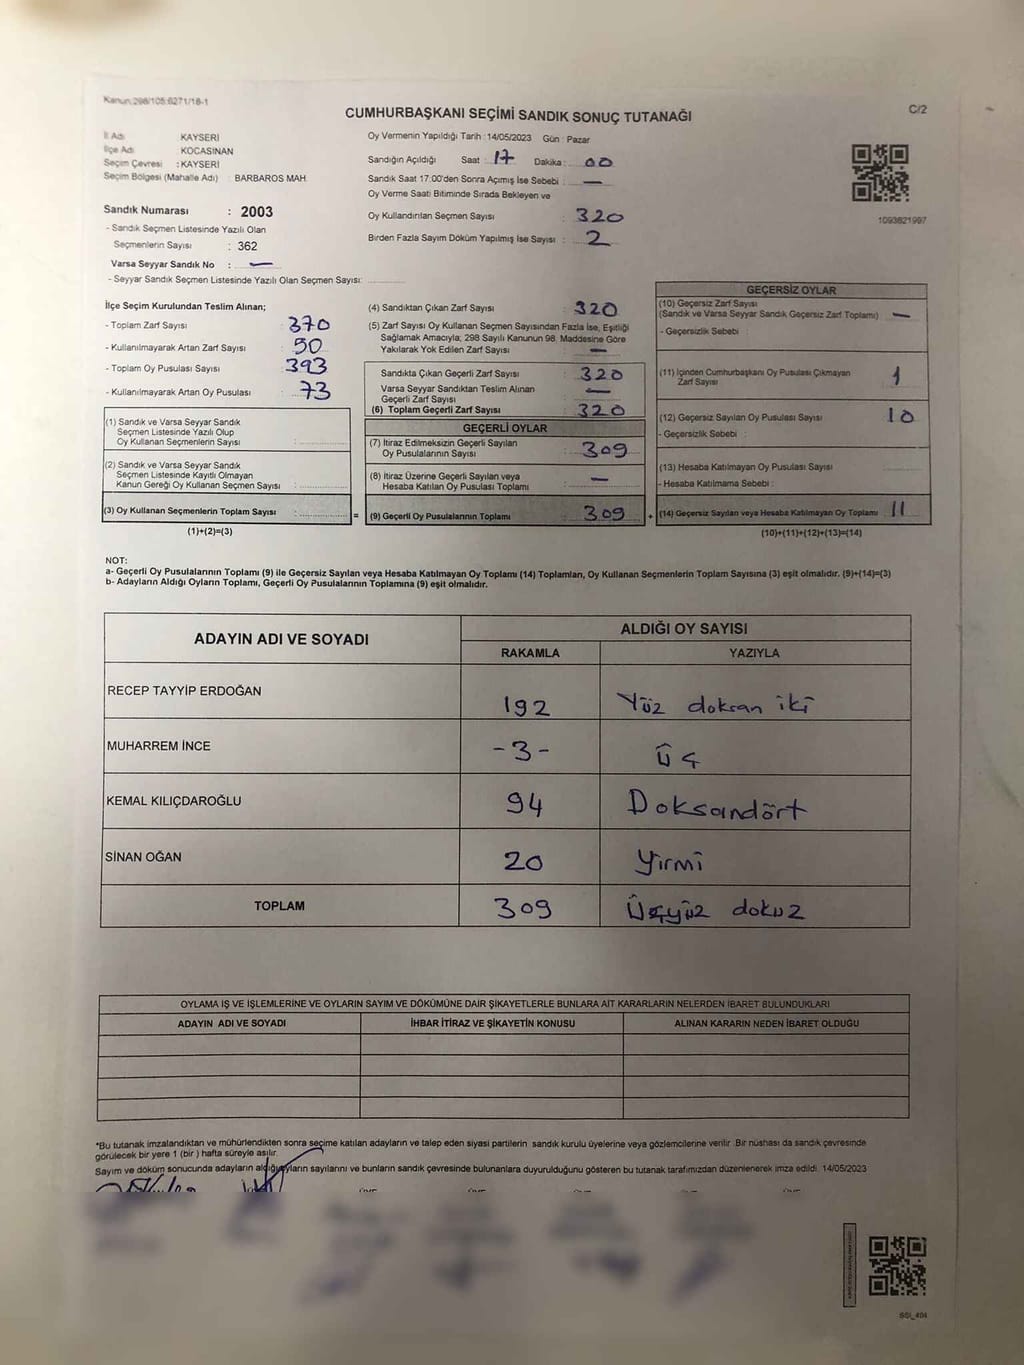 Kanun:298/105:6271/18-1
C/2
CUMHURBAŞKANI SEÇİMİ SANDIK SONUÇ TUTANAĞI
İl Adı KAYSERİ
İlçe Adı KOCASİNAN
Seçim Çevresi : KAYSERİ
Seçim Bölgesi (Mahalle Adı) : BARBAROS MAH.
Sandık Numarası : 2003
- Sandık Seçmen Listesinde Yazılı Olan
Seçmenlerin Sayısı : 362
Varsa Seyyar Sandık No : —
- Seyyar Sandık Seçmen Listesinde Yazılı Olan Seçmen Sayısı:
Oy Vermenin Yapıldığı Tarih : 14/05/2023 Gün : Pazar
Sandığın Açıldığı Saat : 17 Dakika : 00
Sandık Saat 17:00'den Sonra Açımış İse Sebebi : —
Oy Verme Saati Bitiminde Sırada Bekleyen ve
Oy Kullandırılan Seçmen Sayısı : 320
Birden Fazla Sayım Döküm Yapılmış İse Sayısı : 2
1093621997
İlçe Seçim Kurulundan Teslim Alınan;
- Toplam Zarf Sayısı : 370
- Kullanılmayarak Artan Zarf Sayısı : 50
- Toplam Oy Pusulası Sayısı : 393
- Kullanılmayarak Artan Oy Pusulası : 73
(1) Sandık ve Varsa Seyyar Sandık
Seçmen Listesinde Yazılı Olup
Oy Kullanan Seçmenlerin Sayısı :
(2) Sandık ve Varsa Seyyar Sandık
Seçmen Listesinde Kayıtlı Olmayan
Kanun Gereği Oy Kullanan Seçmen Sayısı :
(3) Oy Kullanan Seçmenlerin Toplam Sayısı :
(1)+(2)=(3)
(4) Sandıktan Çıkan Zarf Sayısı : 320
(5) Zarf Sayısı Oy Kullanan Seçmen Sayısından Fazla İse, Eşitliği
Sağlamak Amacıyla; 298 Sayılı Kanunun 98. Maddesine Göre
Yakılarak Yok Edilen Zarf Sayısı : —
Sandıkta Çıkan Geçerli Zarf Sayısı : 320
Varsa Seyyar Sandıktan Teslim Alınan
Geçerli Zarf Sayısı : —
(6) Toplam Geçerli Zarf Sayısı : 320
GEÇERLİ OYLAR
(7) İtiraz Edilmeksizin Geçerli Sayılan
Oy Pusulalarının Sayısı : 309
(8) İtiraz Üzerine Geçerli Sayılan veya
Hesaba Katılan Oy Pusulası Toplamı : —
= (9) Geçerli Oy Pusulalarının Toplamı : 309
GEÇERSİZ OYLAR
(10) Geçersiz Zarf Sayısı
(Sandık ve Varsa Seyyar Sandık Geçersiz Zarf Toplamı) : —
- Geçersizlik Sebebi :
(11) İçinden Cumhurbaşkanı Oy Pusulası Çıkmayan
Zarf Sayısı : 1
(12) Geçersiz Sayılan Oy Pusulası Sayısı : 10
- Geçersizlik Sebebi :
(13) Hesaba Katılmayan Oy Pusulası Sayısı
- Hesaba Katılmama Sebebi :
+ (14) Geçersiz Sayılan veya Hesaba Katılmayan Oy Toplamı : 11
(10)+(11)+(12)+(13)=(14)
NOT:
a- Geçerli Oy Pusulalarının Toplamı (9) ile Geçersiz Sayılan veya Hesaba Katılmayan Oy Toplamı (14) Toplamları, Oy Kullanan Seçmenlerin Toplam Sayısına (3) eşit olmalıdır. (9)+(14)=(3)
b- Adayların Aldığı Oyların Toplamı, Geçerli Oy Pusulalarının Toplamına (9) eşit olmalıdır.
ADAYIN ADI VE SOYADI ALDIĞI OY SAYISI
RAKAMLA YAZIYLA
RECEP TAYYİP ERDOĞAN 192 Yüz doksan iki
MUHARREM İNCE -3- Üç
KEMAL KILIÇDAROĞLU 94 Doksandört
SİNAN OĞAN 20 Yirmi
TOPLAM 309 Üçyüz dokuz
OYLAMA İŞ VE İŞLEMLERİNE VE OYLARIN SAYIM VE DÖKÜMÜNE DAİR ŞİKAYETLERLE BUNLARA AİT KARARLARIN NELERDEN İBARET BULUNDUKLARI
ADAYIN ADI VE SOYADI İHBAR İTİRAZ VE ŞİKAYETİN KONUSU ALINAN KARARIN NEDEN İBARET OLDUĞU
*Bu tutanak imzalandıktan ve mühürlendikten sonra seçime katılan adayların ve talep eden siyasi partilerin sandık kurulu üyelerine veya gözlemcilerine verilir. Bir nüshası da sandık çevresinde
görülecek bir yere 1 (bir) hafta süreyle asılır.
Sayım ve döküm sonucunda adayların aldığı oyların sayılarını ve bunların sandık çevresinde bulunanlara duyurulduğunu gösteren bu tutanak tarafımızdan düzenlenerek imza edildi. 14/05/2023